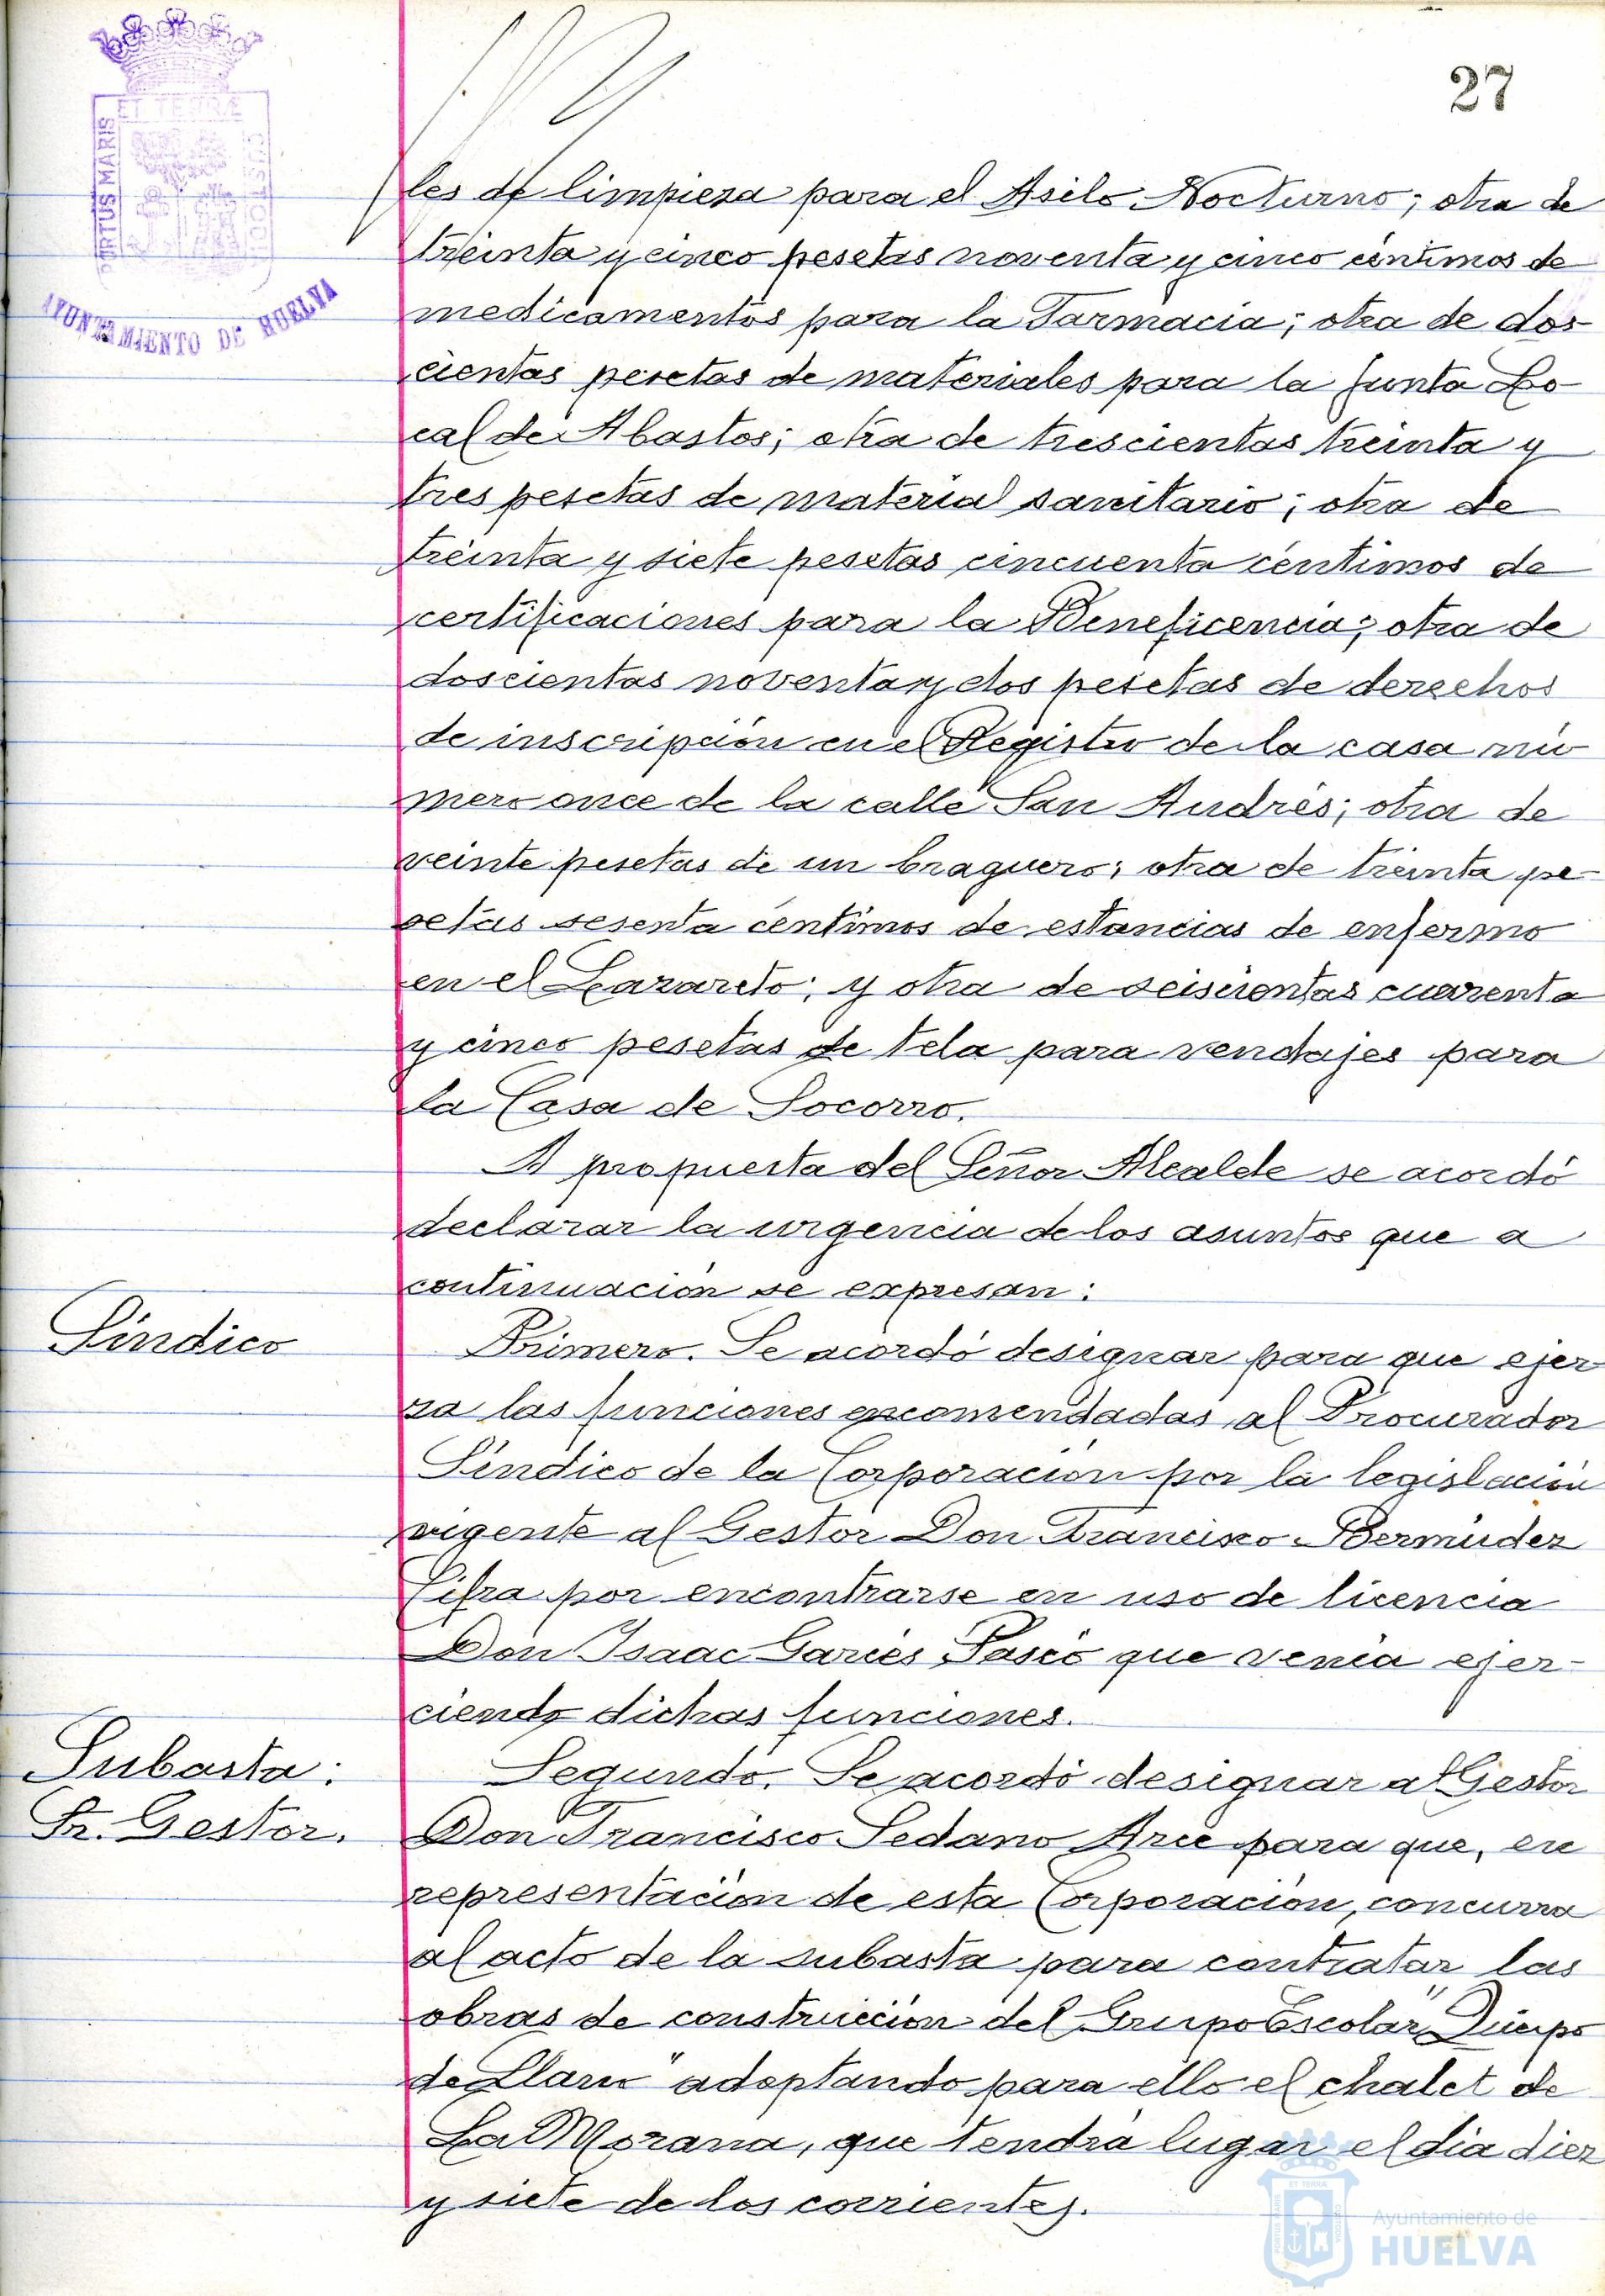 27
ET TERRÆ
PORTUS MARIS
CUSTODIA
AYUNTAMIENTO DE HUELVA
les de limpieza para el Asilo Nocturno; otra de
treinta y cinco pesetas noventa y cinco céntimos de
medicamentos para la Farmacia; otra de dos-
cientas pesetas de materiales para la Junta Lo-
cal de Abastos; otra de trescientas treinta y
tres pesetas de material sanitario; otra de
treinta y siete pesetas cincuenta céntimos de
certificaciones para la Beneficencia; otra de
doscientas noventa y dos pesetas de derechos
de inscripción en el Registro de la casa nú-
mero once de la calle San Andrés; otra de
veinte pesetas de un braguero; otra de treinta pe-
setas sesenta céntimos de estancias de enfermo
en el Lazareto; y otra de seiscientas cuarenta
y cinco pesetas de tela para vendajes para
la Casa de Socorro.
A propuesta del Señor Alcalde se acordó
declarar la urgencia de los asuntos que a
continuación se expresan:
Síndico
Primero. Se acordó designar para que ejer-
za las funciones encomendadas al Procurador
Síndico de la Corporación por la legislación
vigente al Gestor Don Francisco Bermúdez
Cifra por encontrarse en uso de licencia
Don Isaac Garcés Pascó que venía ejer-
ciendo dichas funciones.
Subasta:
Sr. Gestor.
Segundo. Se acordó designar al Gestor
Don Francisco Sedano Arce para que, en
representación de esta Corporación, concurra
al acto de la subasta para contratar las
obras de construcción del Grupo Escolar "Queipo
de Llano" adaptando para ello el chalet de
La Morana, que tendrá lugar el día diez
y siete de los corrientes.
Ayuntamiento de
HUELVA